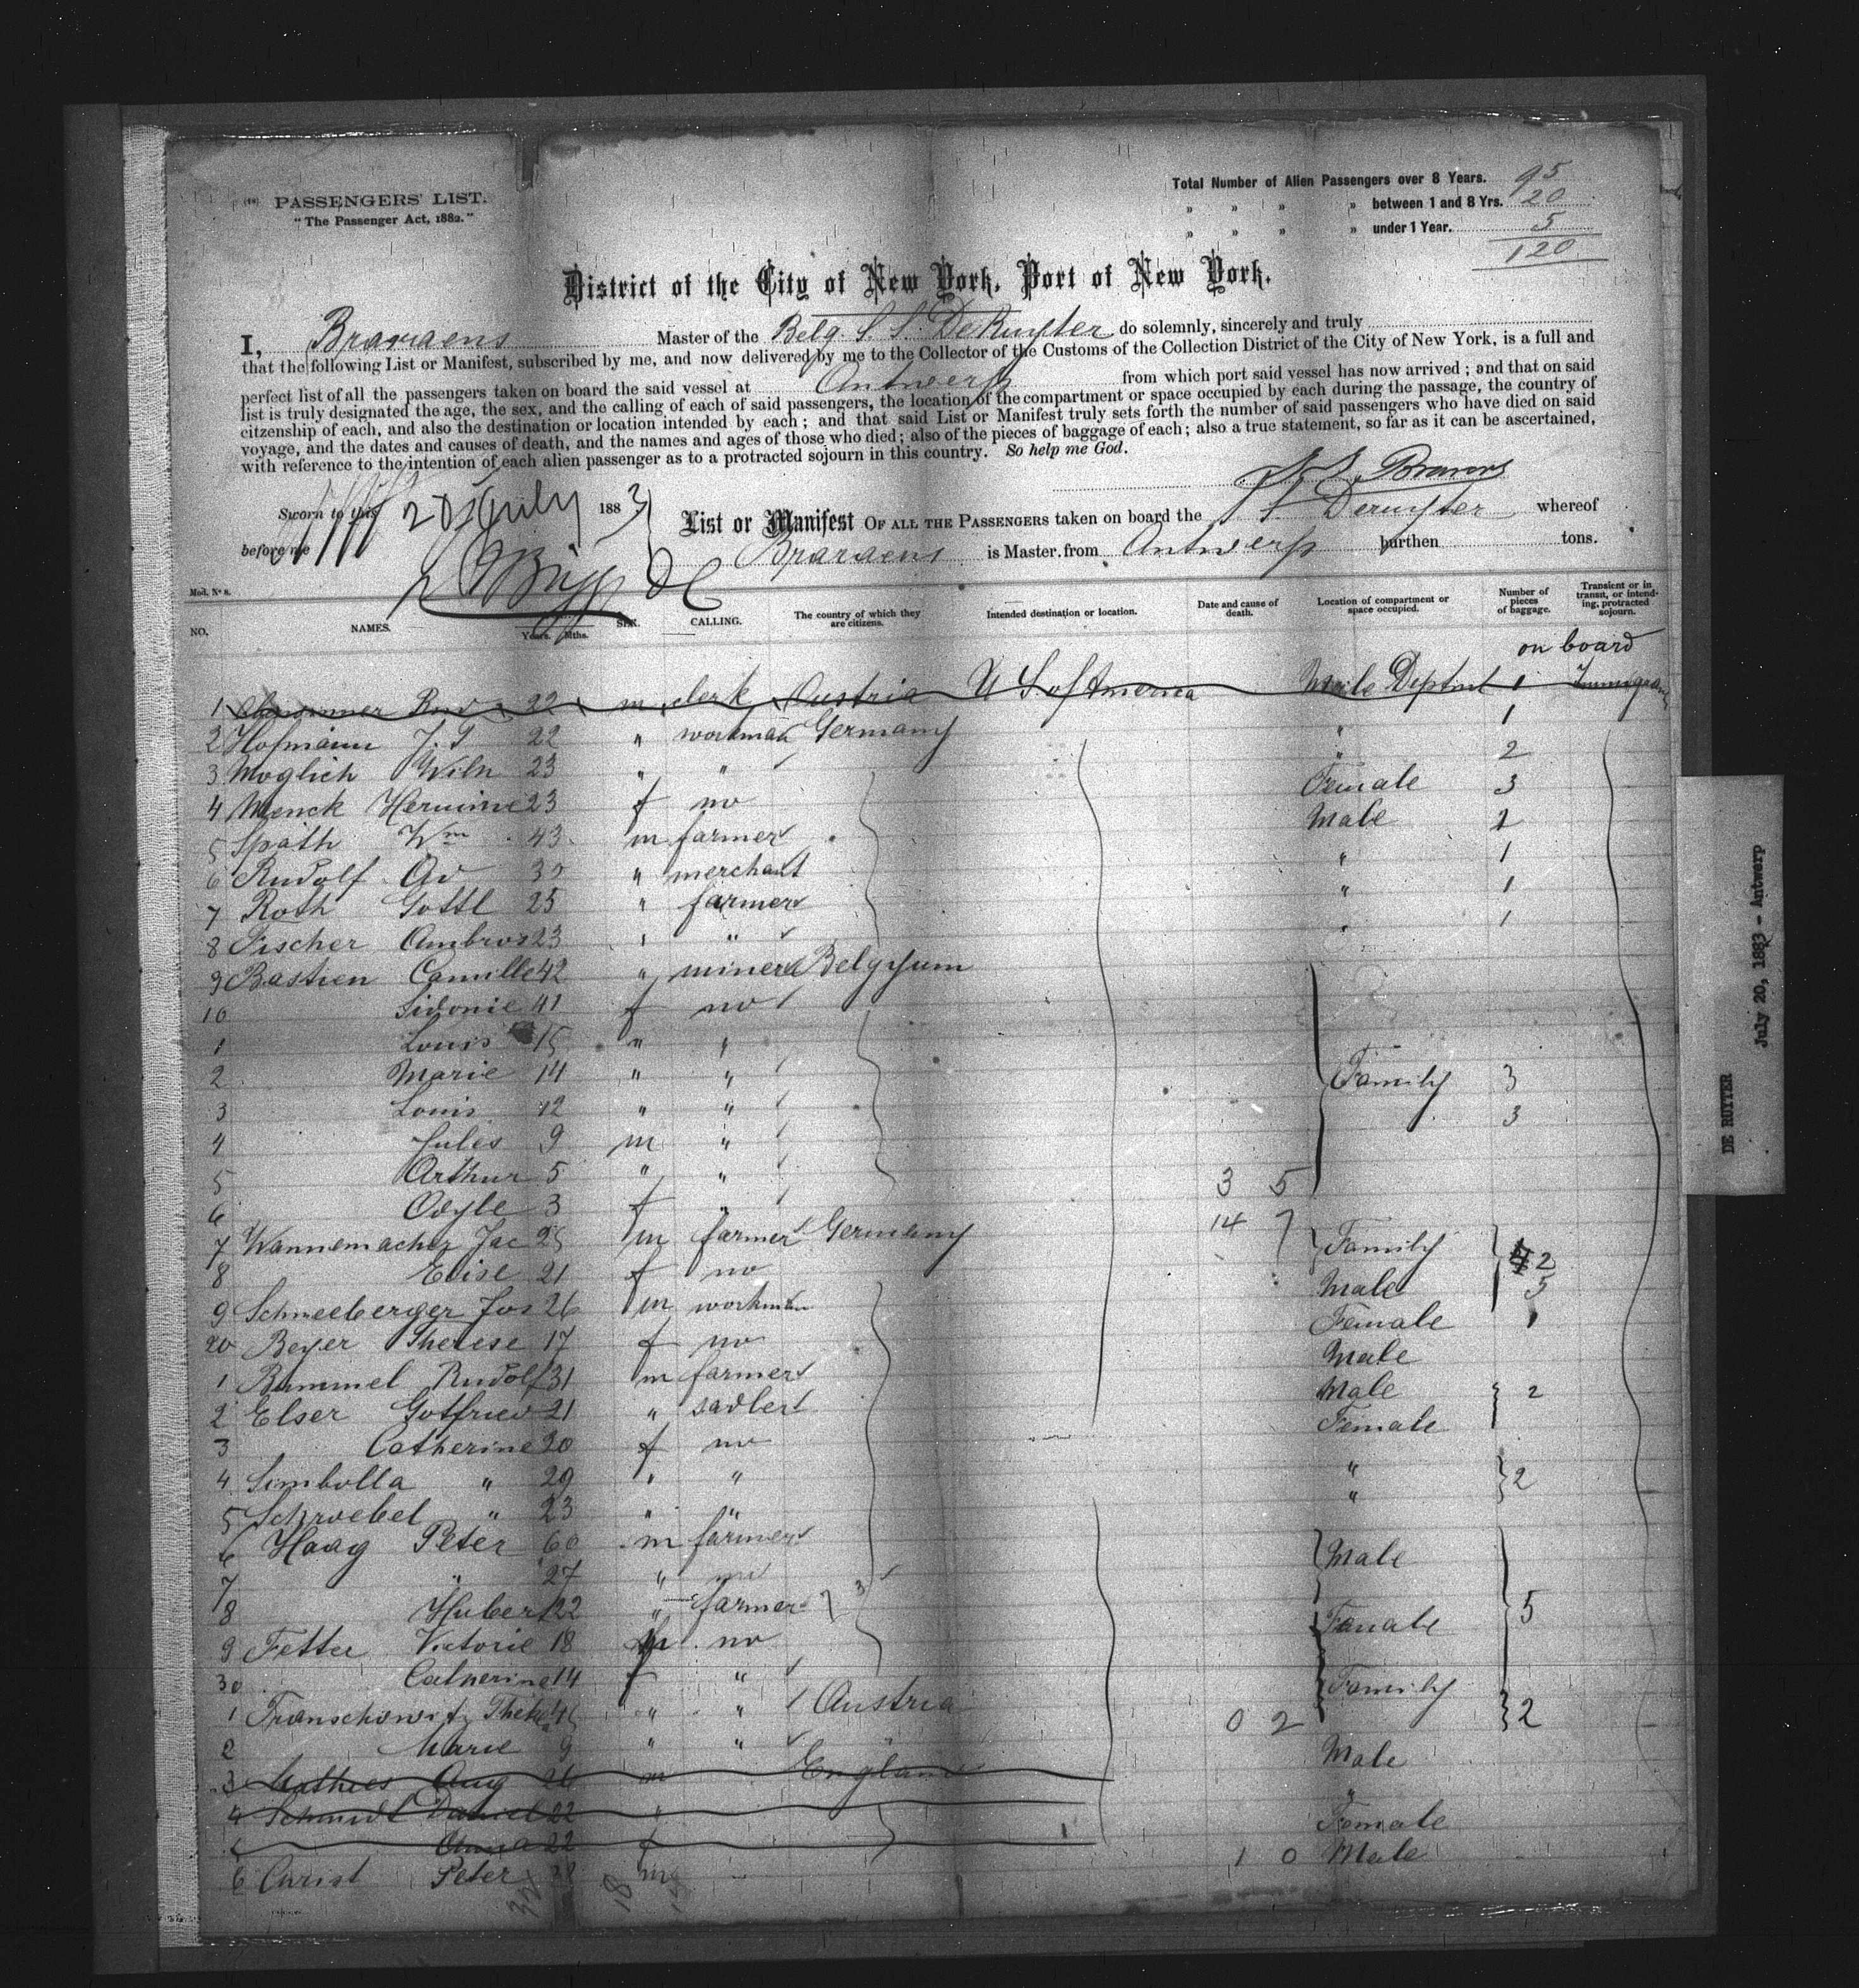 PASSENGERS' LIST.
"The Passenger Act, 1882."
Total Number of Alien Passengers over 8 Years. 95
" " " " between 1 and 8 Yrs. 20
" " " " under 1 Year. 5
120
District of the City of New York, Port of New York.
I, Braraens Master of the Belg. S. S. DeRuyter do solemnly, sincerely and truly
that the following List or Manifest, subscribed by me, and now delivered by me to the Collector of the Customs of the Collection District of the City of New York, is a full and
perfect list of all the passengers taken on board the said vessel at Antwerp from which port said vessel has now arrived; and that on said
list is truly designated the age, the sex, and the calling of each of said passengers, the location of the compartment or space occupied by each during the passage, the country of
citzenship of each, and also the destination or location intended by each; and that said List or Manifest truly sets forth the number of said passengers who have died on said
voyage, and the dates and causes of death, and the names and ages of those who died; also of the pieces of baggage of each; also a true statement, so far as it can be ascertained,
with reference to the intention of each alien passenger as to a protracted sojourn in this country. So help me God.
Sworn to this 20 July 1883
before me
List or Manifest OF ALL THE PASSENGERS taken on board the Deruyter whereof
Braraens is Master, from Antwerp burthen tons.
Mod. No 8.
NO. NAMES. Years. Mths. SEX. CALLING. The country of which they are citizens. Intended destination or location. Date and cause of death. Location of compartment or space occupied. Number of pieces of baggage. Transient or in transit, or intending, protracted sojourn.
on board
1 22 m clerk Austria U S of America Male Deptmt 1
2 Hofmann J. 22 " workman Germany " 1
3 Moglich Wilh 23 " " " 2
4 Menck Hermine 23 f no Female 3
5 Späth Wm 43 m farmer Male 2
6 Rudolf Ad 30 " merchant " 1
7 Roth Gottl 25 " farmer " 1
8 Fischer Ambros 23 " " " 1
9 Bastien Camille 42 " miner Belgyum
10 Sidonie 41 f no
1 Louis 15 " "
2 Marie 14 " " Family 3
3 Louis 12 " " 3
4 Jules 9 m "
5 Arthur 5 " " 3 5
6 Odyle 3 f " 14 7
7 Wannemacher Jac 25 m farmer Germany Family 2
8 Elise 21 f no Male 5
9 Schneeberger Jos 26 m workman Female 1
20 Beyer Therese 17 f no Male
1 Rummel Rudolf 31 m farmer Male 2
2 Elser Gotfried 21 " sadler Female
3 Catherine 20 f no
4 Simbolla " 29 " " " 2
5 Schroebel " 23 " " "
6 Haag Peter 60 m farmer Male
7 " 27 "
8 Hubert 22 " farmer 3 5
9 Fetter Victorie 18 no
30 Catherine 14 f " Family
1 Franschowitz 45 " " Austria 0 2 2
2 Marie 9 " " Male
3 Mathies Aug 26 m England
4 Schmidt Daniel 22 " Female
5 Anna 22 f
6 Christ Peter 28 m 1 0 Male
DE RUYTER
July 20, 1883 - Antwerp